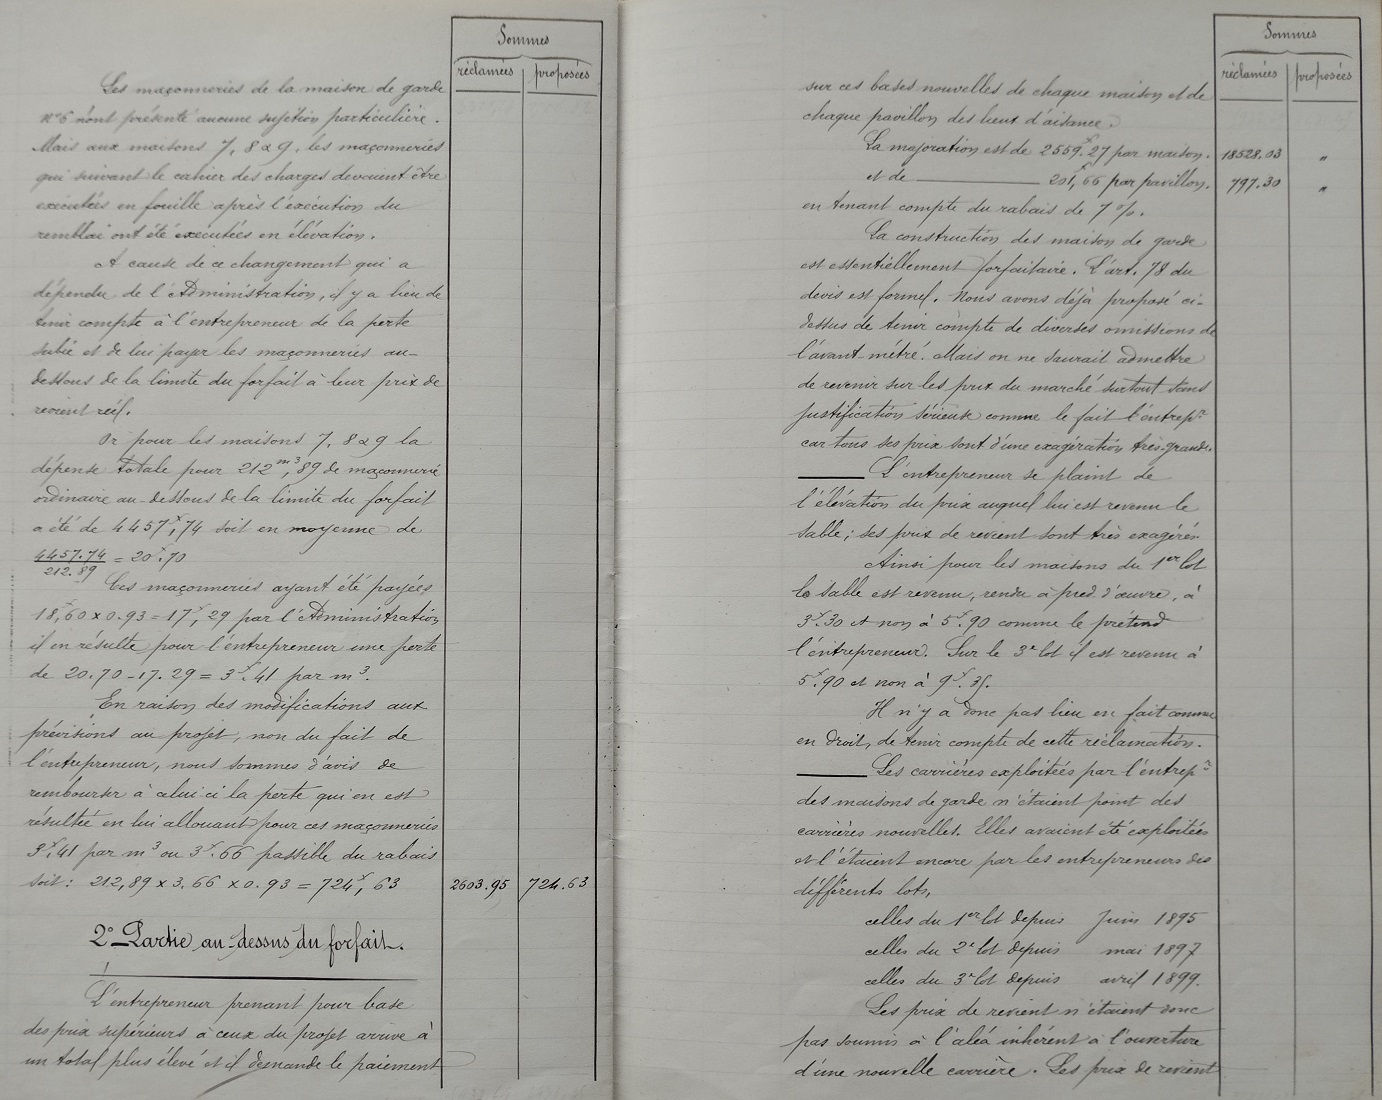 Sommes
réclamées proposées
Les maçonneries de la maison de garde
n°6 n'ont présenté aucune sujétion particulière.
Mais aux maisons 7, 8 & 9, les maçonneries
qui suivant le cahier des charges devaient être
exécutées en fouille après l'exécution du
remblai ont été exécutées en élévation.
A cause de ce changement qui a
dépendu de l'Administration, il y a lieu de
tenir compte à l'entrepreneur de la perte
subie et de lui payer les maçonneries au-
dessous de la limite du forfait à leur prix de
revient réel.
Or pour les maisons 7, 8 & 9 la
dépense totale pour 212 m³,89 de maçonnerie
ordinaire au-dessous de la limite du forfait
a été de 4457f,74 soit en moyenne de
4457.74 / 212.89 = 20f.70
Ces maçonneries ayant été payées
18f,60 x 0.93 = 17f,29 par l'Administration
il en résulte pour l'entrepreneur une perte
de 20.70 - 17.29 = 3f.41 par m³.
En raison des modifications aux
prévisions au projet, non du fait de
l'entrepreneur, nous sommes d'avis de
rembourser à celui-ci la perte qui en est
résultée en lui allouant pour ces maçonneries
3f,41 par m³ ou 3f.66 passible du rabais
soit : 212,89 x 3.66 x 0.93 = 724f,63 2603.95 724.63
2° Partie au-dessus du forfait.
L'entrepreneur prenant pour base
des prix supérieurs à ceux du projet arrive à
un total plus élevé et il demande le paiement
Sommes
réclamées proposées
sur ces bases nouvelles de chaque maison et de
chaque pavillon des lieux d'aisance.
La majoration est de 2559f.27 par maison. 18528.03 "
et de 201f,66 par pavillon. 797.30 "
en tenant compte du rabais de 7 %.
La construction des maison de garde
est essentiellement forfaitaire. L'art. 78 du
devis est formel. Nous avons déjà proposé ci-
dessus de tenir compte de diverses omissions de
l'avant-métré. Mais on ne saurait admettre
de revenir sur les prix du marché surtout sans
justification sérieuse comme le fait l'entrepr
car tous ses prix sont d'une exagération très grande.
L'entrepreneur se plaint de
l'élévation du prix auquel lui est revenu le
sable ; ses prix de revient sont très exagérés
Ainsi pour les maisons du 1er lot
le sable est revenu, rendu à pied d'œuvre, à
3f.30 et non à 5f.90 comme le prétend
l'entrepreneur. Sur le 3e lot il est revenu à
5f.90 et non à 9f.35.
Il n'y a donc pas lieu en fait comme
en droit, de tenir compte de cette réclamation.
Les carrières exploitées par l'entrepr
des maisons de garde n'étaient point des
carrières nouvelles. Elles avaient été exploitées
et l'étaient encore par les entrepreneurs des
différents lots,
celles du 1er lot depuis Juin 1895
celles du 2e lot depuis mai 1897
celles du 3e lot depuis avril 1899.
Les prix de revient n'étaient donc
pas soumis à l'aléa inhérent à l'ouverture
d'une nouvelle carrière. Les prix de revient